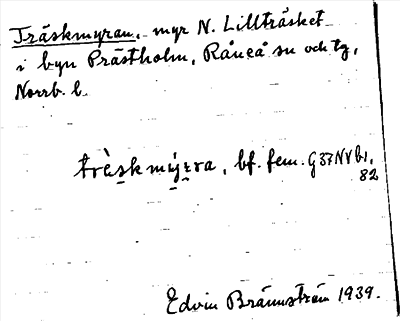 Träskmyran, myr N. Lillträsket
i byn Prästholm, Råneå sn och tg,
Norrb. l.
trèskmýrra, bf. fem. G37NVb1,
82
Edvin Brännström 1939.